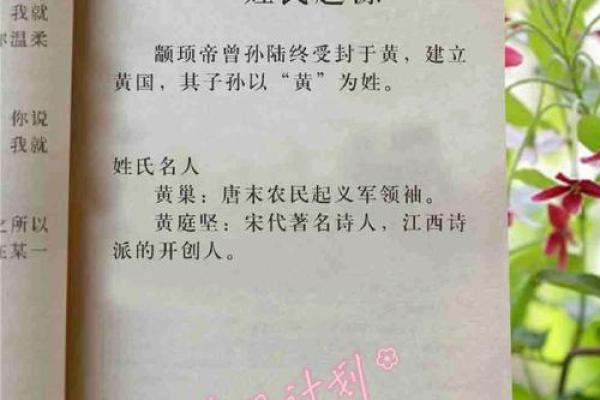 我就
温柔
你说
我就
之所以
在某一
姓氏起源
颛顼帝曾孙陆终受封于黄，建立
黄国，其子孙以“黄”为姓。
姓氏名人
黄巢：唐末农民起义军领袖。
黄庭坚：宋代著名诗人，江西诗
派的开创人。
计划